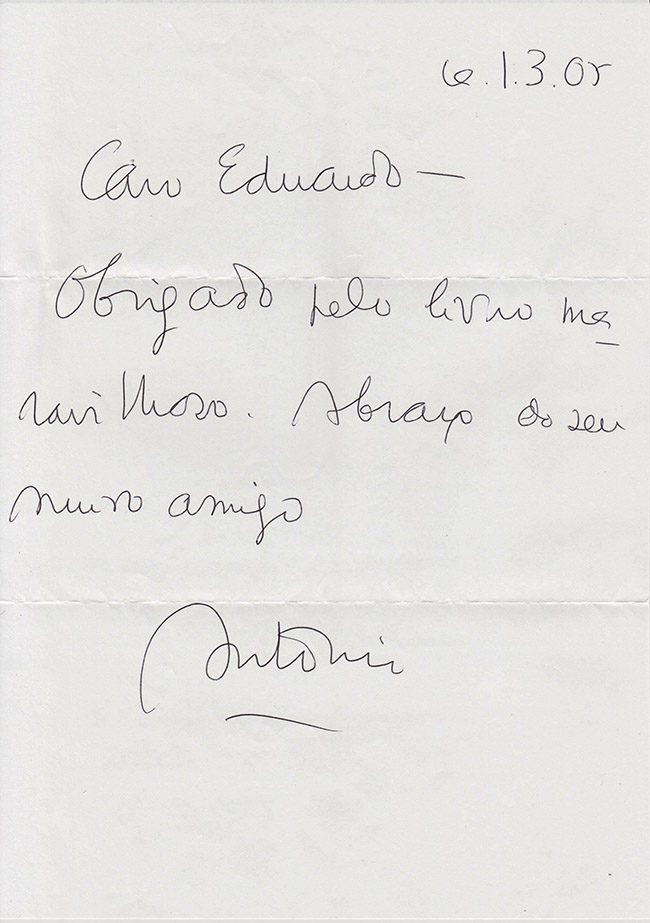 Lx. 1.3.05
Caro Eduardo —
Obrigado pelo livro ma
ravilhoso. Abraço do seu
muito amigo
Antonio